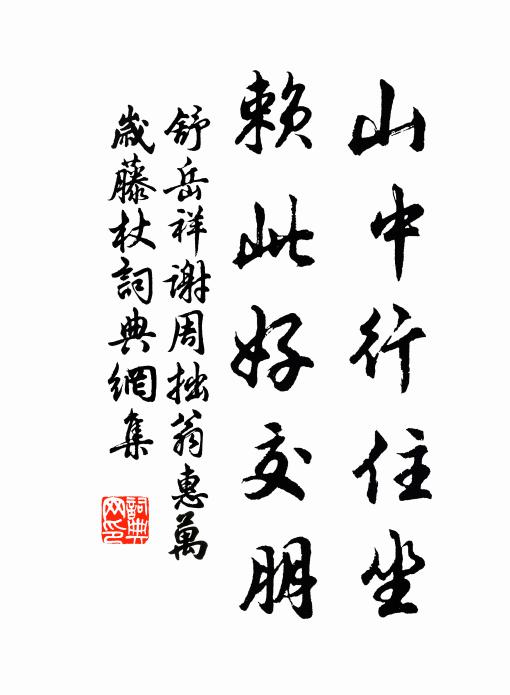 山中行住坐
賴此好交朋
舒岳祥謝周拙翁惠萬
歲藤杖詞典網集
詞典
网印